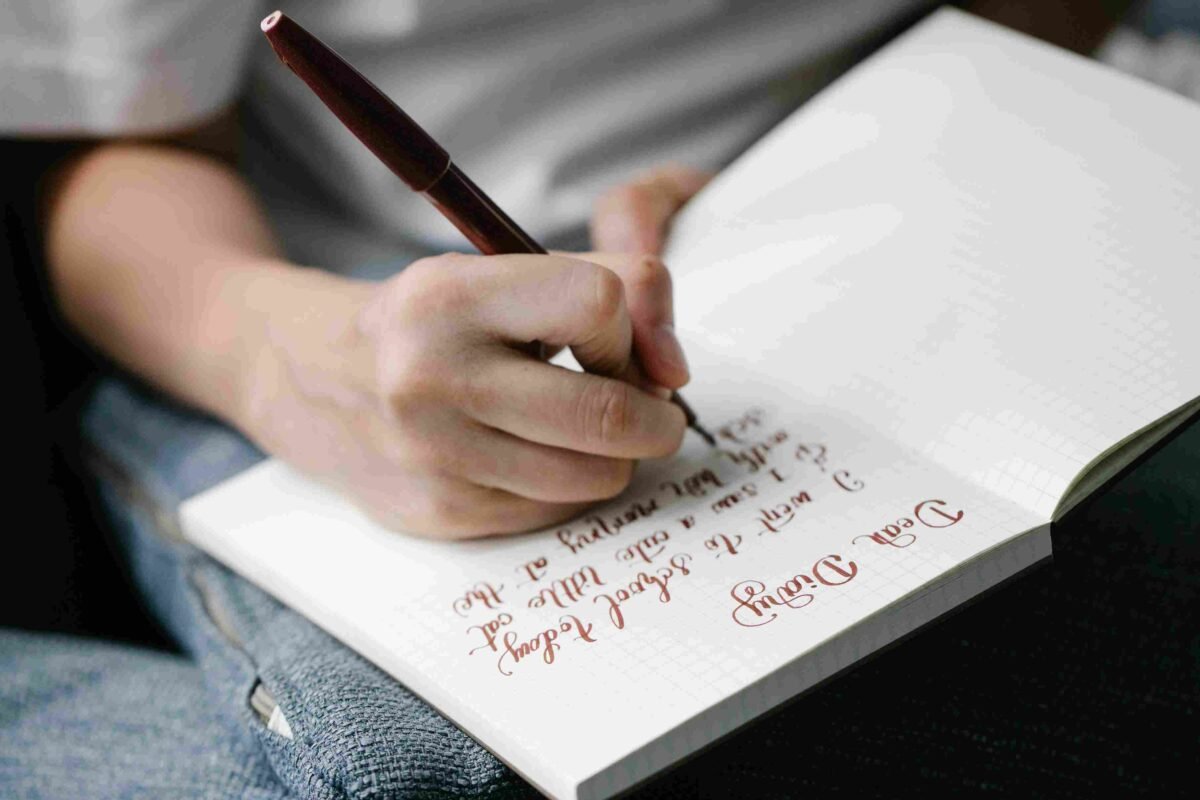 Dear Diary
I went to school today
I saw a cute little cat
with mommy at the
sch